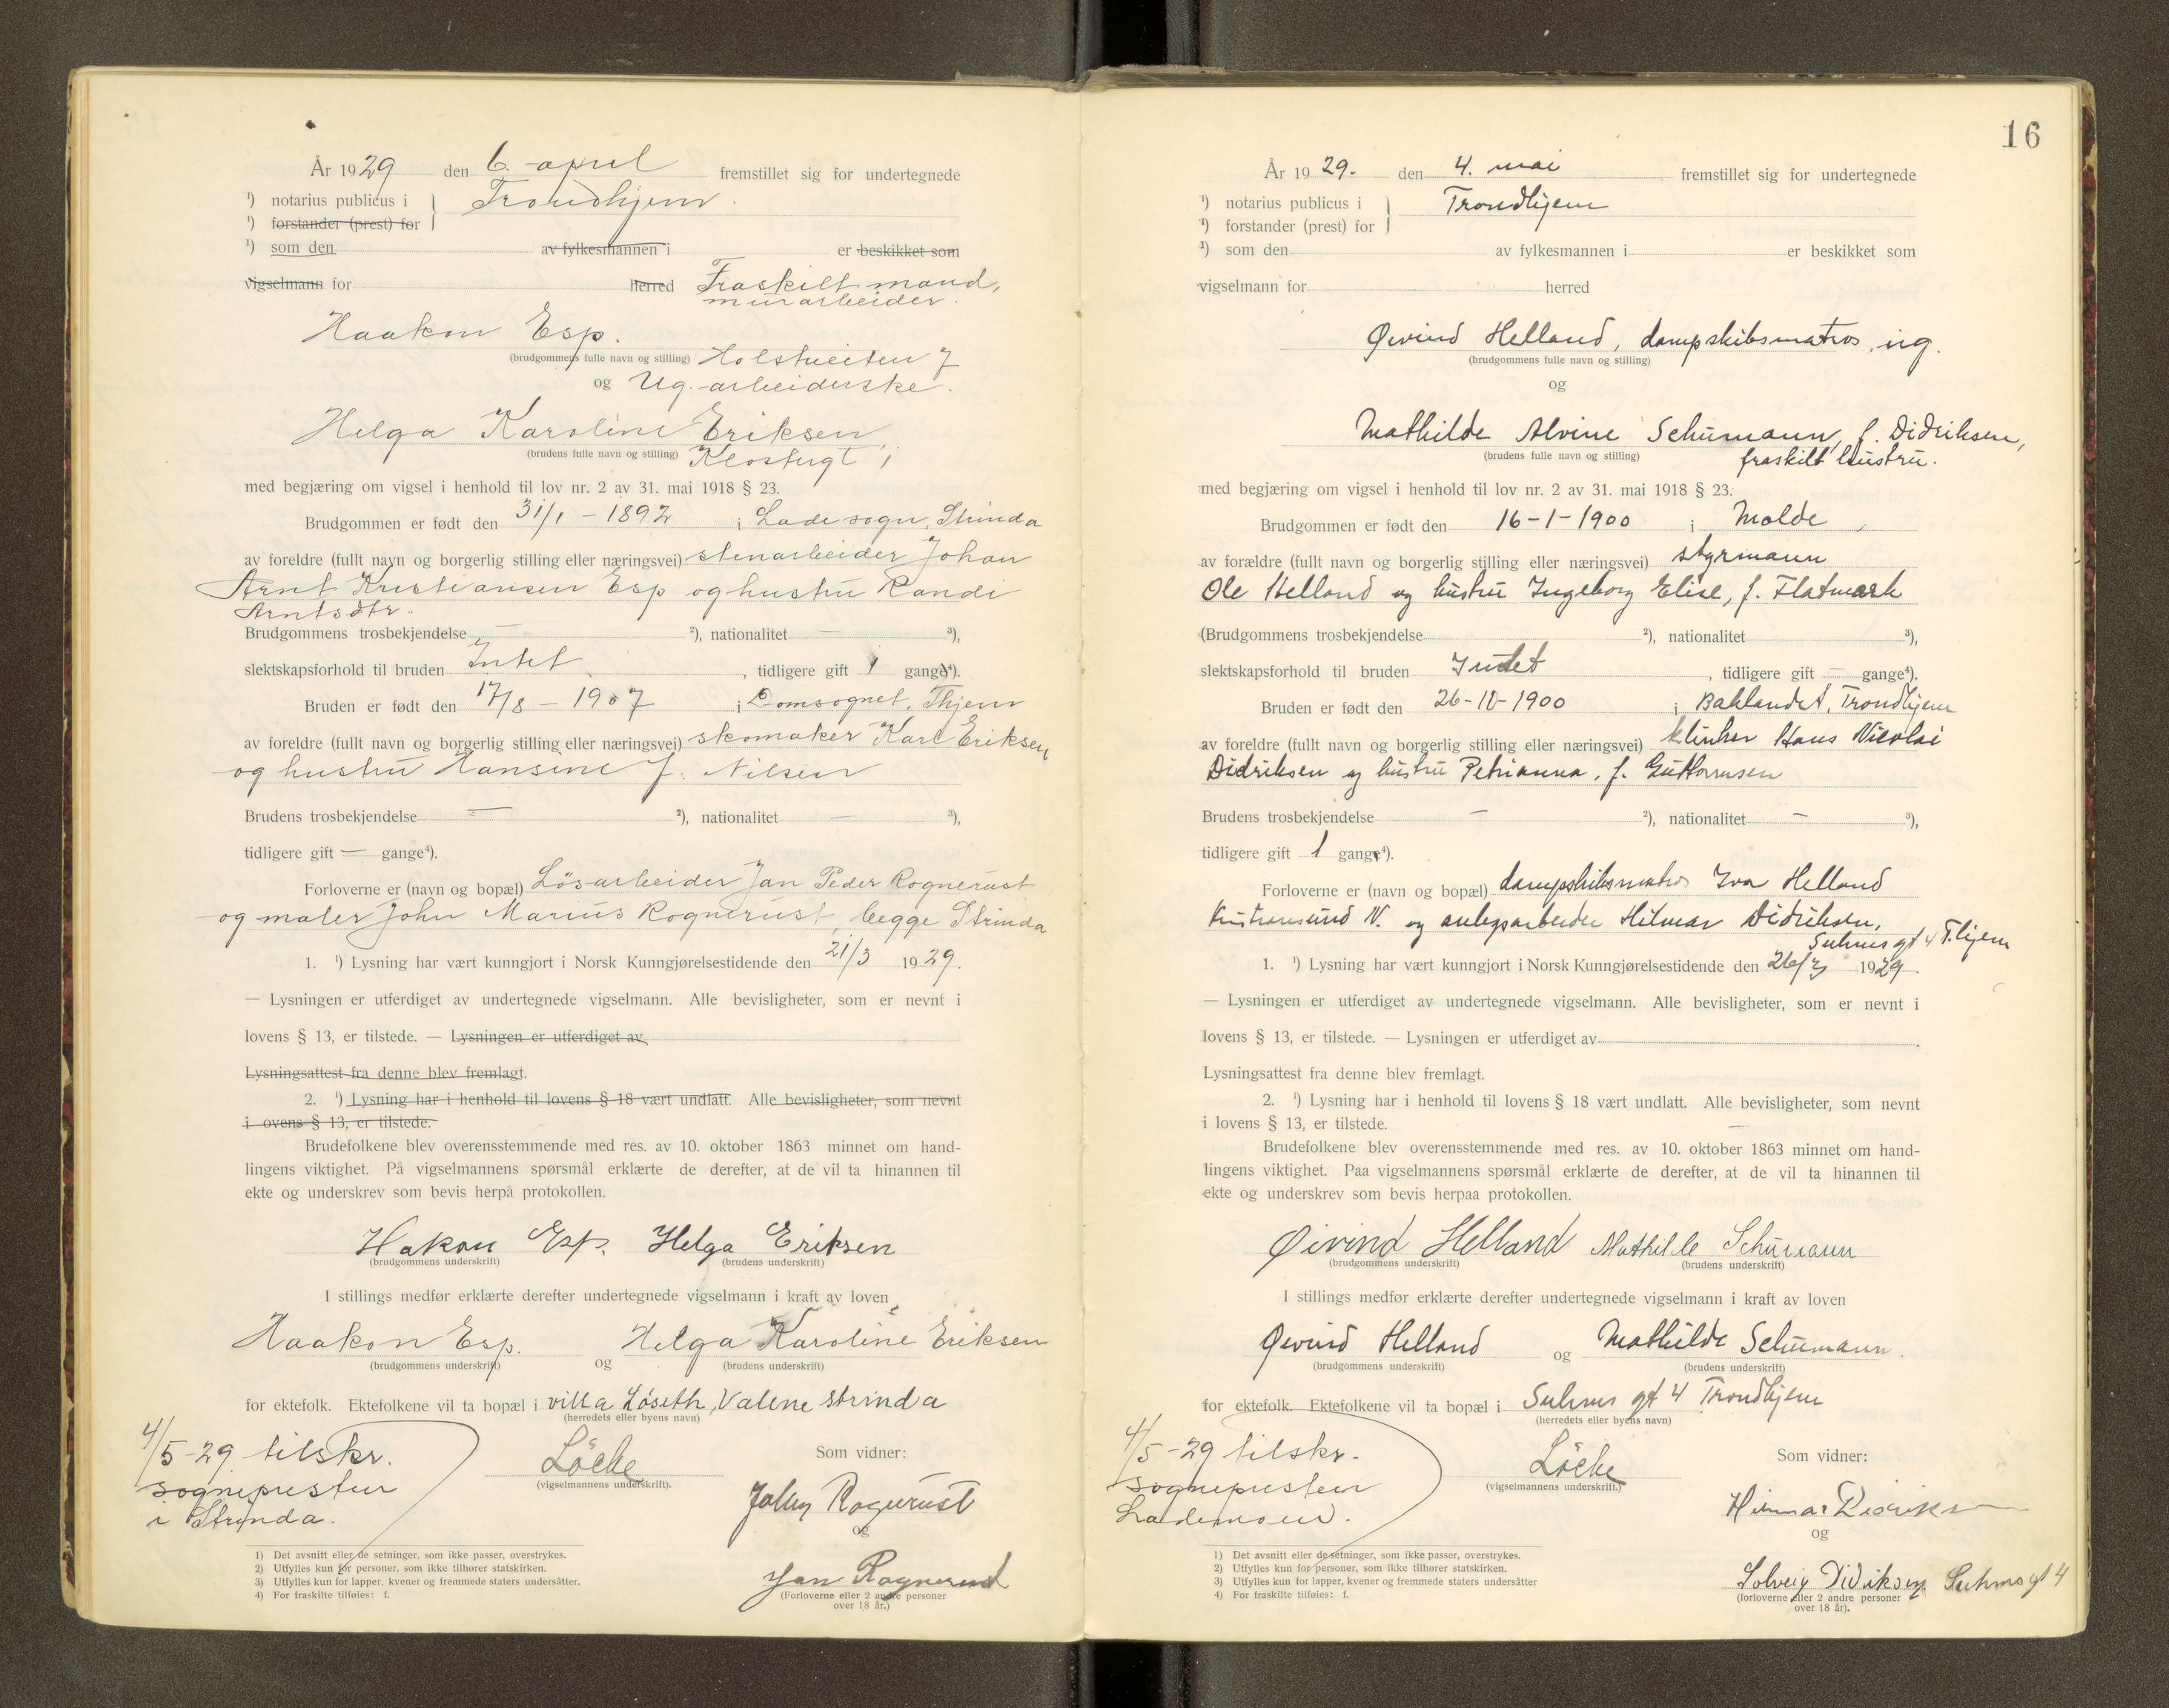 År 1929 den 6. april fremstillet sig for undertegnede
¹) notarius publicus i Trondhjem.
¹) forstander (prest) for
¹) som den av fylkesmannen i er beskikket som
vigselmann for herred Fraskilt mand,
murarbeider.
Haakon Esp.
(brudgommens fulle navn og stilling) Holstveiten 7
og Ug. arbeiderske.
Helga Karoline Eriksen,
(brudens fulle navn og stilling) Klostergt 1
med begjæring om vigsel i henhold til lov nr. 2 av 31. mai 1918 § 23.
Brudgommen er født den 31/1 - 1892 i Lade sogn, Strinda
av foreldre (fullt navn og borgerlig stilling eller næringsvei) stenarbeider Johan
Arnt Kristiansen Esp og hustru Randi
Arntsdtr.
Brudgommens trosbekjendelse — ²), nationalitet — ³),
slektskapsforhold til bruden Intet, tidligere gift 1 gange⁴).
Bruden er født den 17/8 - 1907 i Domsognet, Thjem
av foreldre (fullt navn og borgerlig stilling eller næringsvei) skomaker Karl Eriksen
og hustru Hansine f. Nilsen
Brudens trosbekjendelse — ²), nationalitet — ³),
tidligere gift — gange⁴).
Forloverne er (navn og bopæl) Løsarbeider Jan Peder Rognerust
og maler John Marius Rognerust, begge Strinda
1. ¹) Lysning har vært kunngjort i Norsk Kunngjørelsestidende den 21/3 1929.
— Lysningen er utferdiget av undertegnede vigselmann. Alle bevisligheter, som er nevnt i
lovens § 13, er tilstede. — Lysningen er utferdiget av
Lysningsattest fra denne blev fremlagt.
2. ¹) Lysning har i henhold til lovens § 18 vært undlatt. Alle bevisligheter, som nevnt
i ovens § 13, er tilstede.
Brudefolkene blev overensstemmende med res. av 10. oktober 1863 minnet om hand-
lingens viktighet. På vigselmannens spørsmål erklærte de derefter, at de vil ta hinannen til
ekte og underskrev som bevis herpå protokollen.
Hakon Esp. Helga Eriksen
(brudgommens underskrift) (brudens underskrift)
I stillings medfør erklærte derefter undertegnede vigselmann i kraft av loven
Haakon Esp. og Helga Karoline Eriksen
(brudgommens underskrift) (brudens underskrift)
for ektefolk. Ektefolkene vil ta bopæl i villa Løseth, Valene strinda
(herredets eller byens navn)
4/5-29 tilskr.
sognepresten
i Strinda.
Löcke
(vigselmannens underskrift).
Som vidner:
John Rognerust
og
Jan Rognerust
(Forloverne eller 2 andre personer
over 18 år.)
1) Det avsnitt eller de setninger, som ikke passer, overstrykes.
2) Utfylles kun for personer, som ikke tilhører statskirken.
3) Utfylles kun for lapper, kvener og fremmede staters undersåtter.
4) For fraskilte tilføies: f.
16
År 1929. den 4. mai fremstillet sig for undertegnede
¹) notarius publicus i Trondhjem
¹) forstander (prest) for
¹) som den av fylkesmannen i er beskikket som
vigselmann for herred
Øivind Helland, dampskibsmatros, ug.
(brudgommens fulle navn og stilling)
og
Mathilde Alvine Schumann, f. Didriksen,
(brudens fulle navn og stilling) fraskilt hustru.
med begjæring om vigsel i henhold til lov nr. 2 av 31. mai 1918 § 23.
Brudgommen er født den 16-1-1900 i Molde,
av forældre (fullt navn og borgerlig stilling eller næringsvei) styrmann
Ole Helland og hustru Ingeborg Elise, f. Flatmark
(Brudgommens trosbekjendelse ²), nationalitet ³),
slektskapsforhold til bruden Intet, tidligere gift — gange⁴).
Bruden er født den 26-10-1900 i Baklandet, Trondhjem
av foreldre (fullt navn og borgerlig stilling eller næringsvei) klinker Hans Nicolai
Didriksen og hustru Petrianna, f. Guttormsen
Brudens trosbekjendelse — ²), nationalitet — ³),
tidligere gift 1 gange⁴).
Forloverne er (navn og bopæl) dampskibsmatros Ivar Helland
Kristiansund N. og anlegsarbeider Hilmar Didriksen,
Suhms gt 4 T.hjem
1. ¹) Lysning har vært kunngjort i Norsk Kunngjørelsestidende den 26/3 1929.
— Lysningen er utferdiget av undertegnede vigselmann. Alle bevisligheter, som er nevnt i
lovens § 13, er tilstede. — Lysningen er utferdiget av
Lysningsattest fra denne blev fremlagt.
2. ¹) Lysning har i henhold til lovens § 18 vært undlatt. Alle bevisligheter, som nevnt
i lovens § 13, er tilstede.
Brudefolkene blev overensstemmende med res. av 10. oktober 1863 minnet om hand-
lingens viktighet. Paa vigselmannens spørsmål erklærte de derefter, at de vil ta hinannen til
ekte og underskrev som bevis herpaa protokollen.
Øivind Helland Mathilde Schumann
(brudgommens underskrift) (brudens underskrift)
I stillings medfør erklærte derefter undertegnede vigselmann i kraft av loven
Øivind Helland og Mathilde Schumann.
(brudgommens underskrift) (brudens underskrift)
for ektefolk. Ektefolkene vil ta bopæl i Suhms gt 4 Trondhjem
(herredets eller byens navn)
4/5-29 tilskr.
sognepresten
Lademoen.
Löcke
(vigselmannens underskrift.)
Som vidner:
Hilmar Didriksen
og
Solveig Didriksen Suhmsgt 4
(forloverne eller 2 andre personer
over 18 år).
1) Det avsnitt eller de setninger, som ikke passer, overstrykes.
2) Utfylles kun for personer, som ikke tilhører statskirken.
3) Utfylles kun for lapper, kvener og fremmede staters undersåtter
4) For fraskilte tilføies: f.